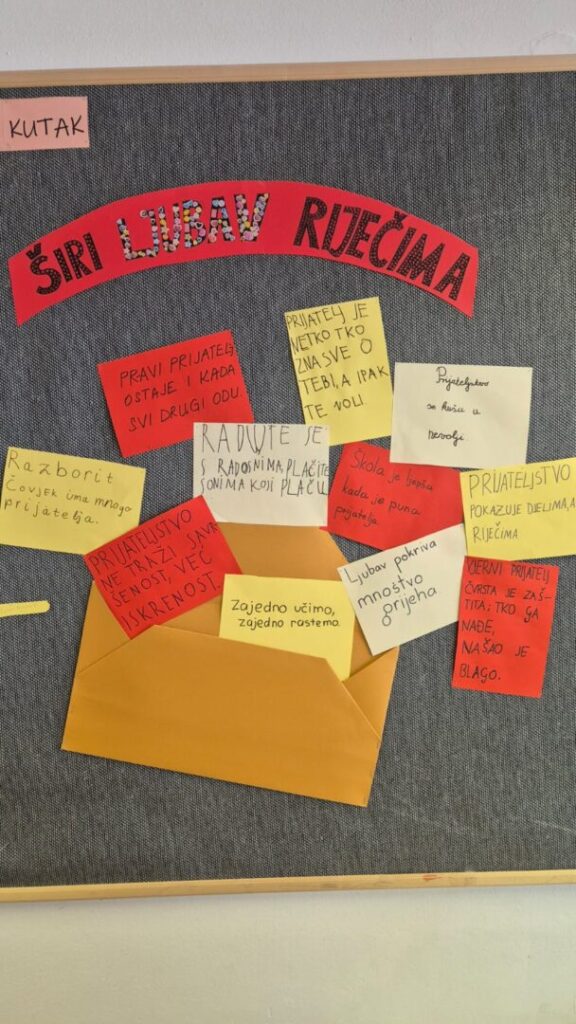 KUTAK
ŠIRI LJUBAV RIJEČIMA
PRIJATELJ JE
NETKO TKO
ZNA SVE O
TEBI, A IPAK
TE VOLI
PRAVI PRIJATELJ
OSTAJE I KADA
SVI DRUGI ODU.
Prijateljstvo
se kuša u
nevolji.
RADUJTE SE
S RADOSNIMA, PLAČITE
S ONIMA KOJI PLAČU
Škola je ljepša
kada je puna
prijatelja.
Razborit
čovjek ima mnogo
prijatelja.
PRIJATELJSTVO
POKAZUJE DJELIMA, A
RIJEČIMA
PRIJATELJSTVO
NE TRAŽI SAVR-
ŠENOST, VEĆ
ISKRENOST.
Ljubav pokriva
mnoštvo
grijeha
VJERNI PRIJATELJ
ČVRSTA JE ZAŠ-
TITA; TKO GA
NAĐE,
NAŠAO JE
BLAGO.
Zajedno učimo,
zajedno rastemo.